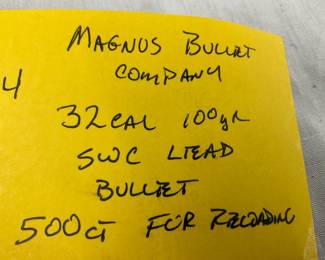 MAGNUS BULLET
COMPANY
4
32CAL 100gr
SWC LEAD
BULLET
500CT FOR RELOADING